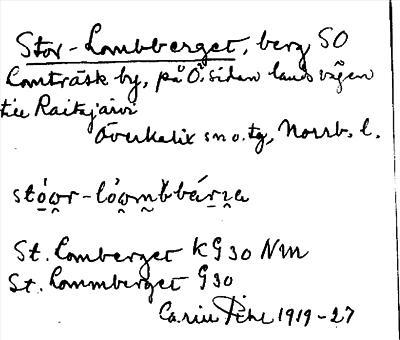 Stor-Lombberget, berg SO
Lomträsk by, på Ö. sidan landsvägen
till Raitajärvi
Överkalix sn o. tg, Norrb. l.
stóor-lòombbárja
St. Lomberget KG30 Nm
St. Lommberget G30
Carin Pihl 1919-27